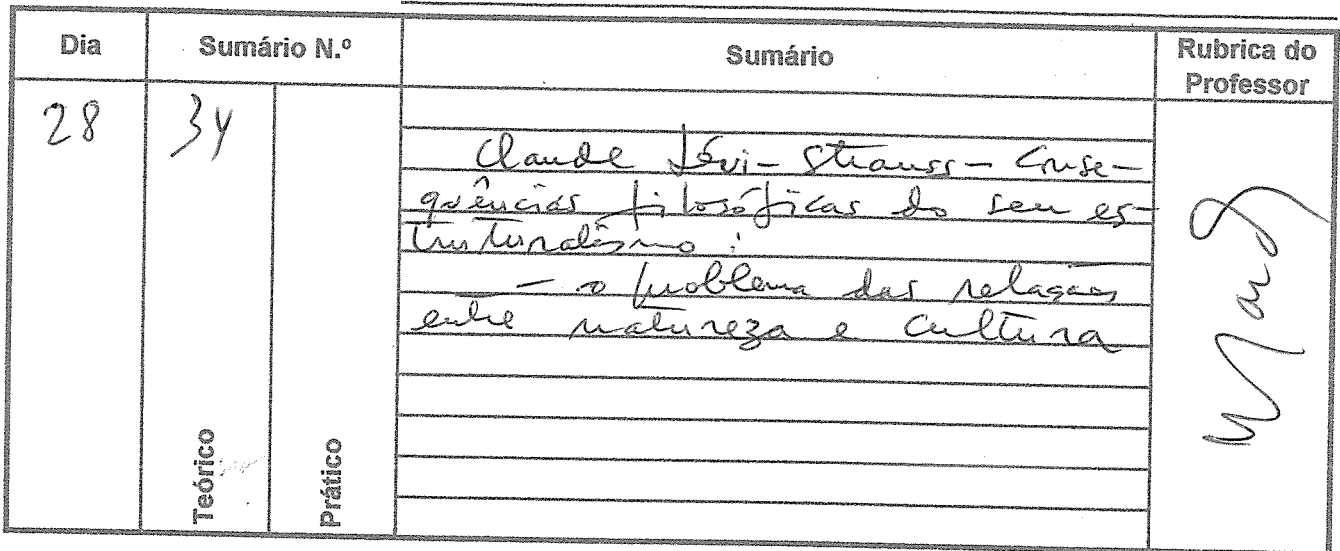 Dia
Sumário N.º
Sumário
Rubrica do
Professor
28
34
Claude Lévi-Strauss - Conse-
qüências filosóficas do seu es-
truturalismo:
- o problema das relações
entre natureza e cultura
Teórico
Prático